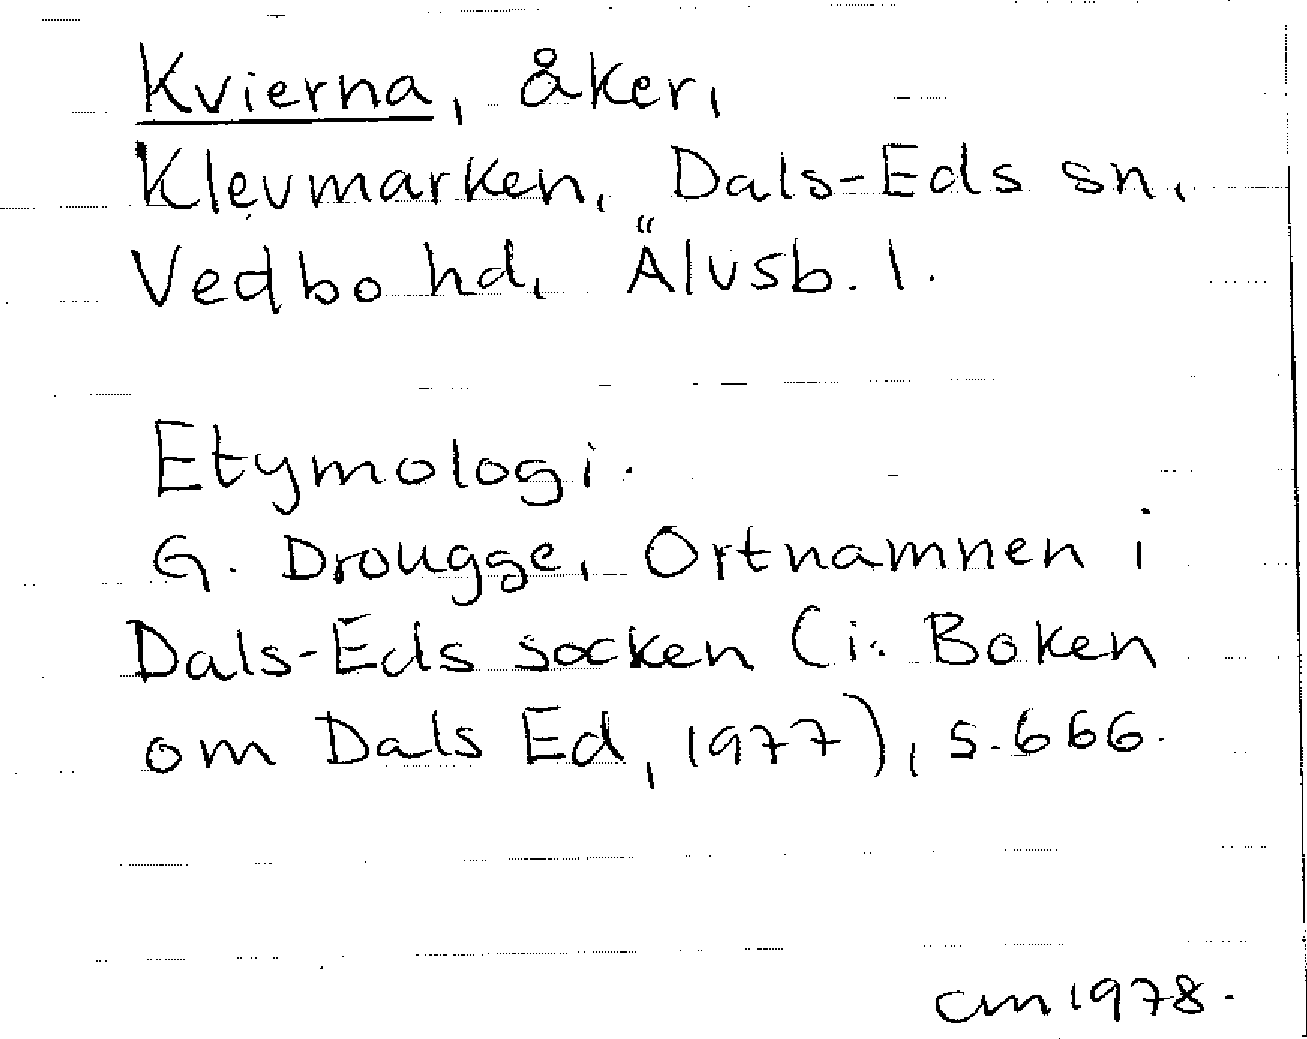 Kvierna, åker,
Klevmarken, Dals-Eds sn,
Vedbo hd, Älvsb. l.
Etymologi.
G. Drougge, Ortnamnen i
Dals-Eds socken (i: Boken
om Dals Ed, 1977), s. 666.
cm 1978.